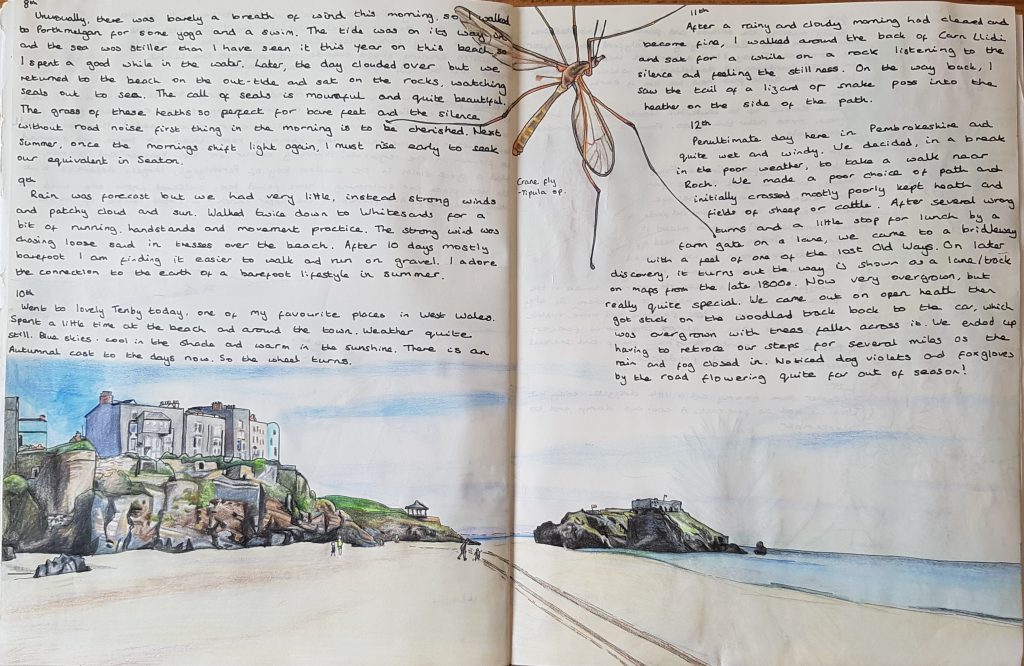 8th
Unusually, there was barely a breath of wind this morning, so I walked
to Porthmelgan for some yoga and a swim. The tide was on its way in
and the sea was stiller than I have seen it this year on this beach, so
I spent a good while in the water. Later, the day clouded over but we
returned to the beach on the out-tide and sat on the rocks, watching
seals out to sea. The call of seals is mournful and quite beautiful.
The grass of these heaths so perfect for bare feet and the silence
without road noise first thing in the morning is to be cherished. Next
Summer, once the mornings shift light again, I must rise early to seek
our equivalent in Seaton.
9th
Rain was forecast but we had very little, instead strong winds
and patchy cloud and sun. Walked twice down to Whitesands for a
bit of running, handstands and movement practice. The strong wind was
chasing loose sand in tresses over the beach. After 10 days mostly
barefoot I am finding it easier to walk and run on gravel. I adore
the connection to the earth of a barefoot lifestyle in summer.
10th
Went to lovely Tenby today, one of my favourite places in West Wales.
Spent a little time at the beach and around the town. Weather quite
still. Blue skies. cool in the shade and warm in the sunshine. There is an
Autumnal cast to the days now. So the wheel turns.
Crane fly
- Tipula sp.
11th
After a rainy and cloudy morning had cleared and
become fine, I walked around the back of Carn Llidi
and sat for a while on a rock listening to the
silence and feeling the stillness. On the way back, I
saw the tail of a lizard or snake pass into the
heather on the side of the path.
12th
Penultimate day here in Pembrokeshire and
quite wet and windy. We decided, in a break
in the poor weather, to take a walk near
Roch. We made a poor choice of path and
initially crossed mostly poorly kept heath and
fields of sheep or cattle. After several wrong
turns and a little stop for lunch by a
farm gate on a lane, we came to a bridleway
with a feel of one of the lost Old Ways. On later
discovery, it turns out the way is shown as a lane/track
on maps from the late 1800s. Now very overgrown, but
really quite special. We came out on open heath then
got stuck on the woodland track back to the car, which
was overgrown with trees fallen across it. We ended up
having to retrace our steps for several miles as the
rain and fog closed in. Noticed dog violets and foxgloves
by the road flowering quite far out of season!